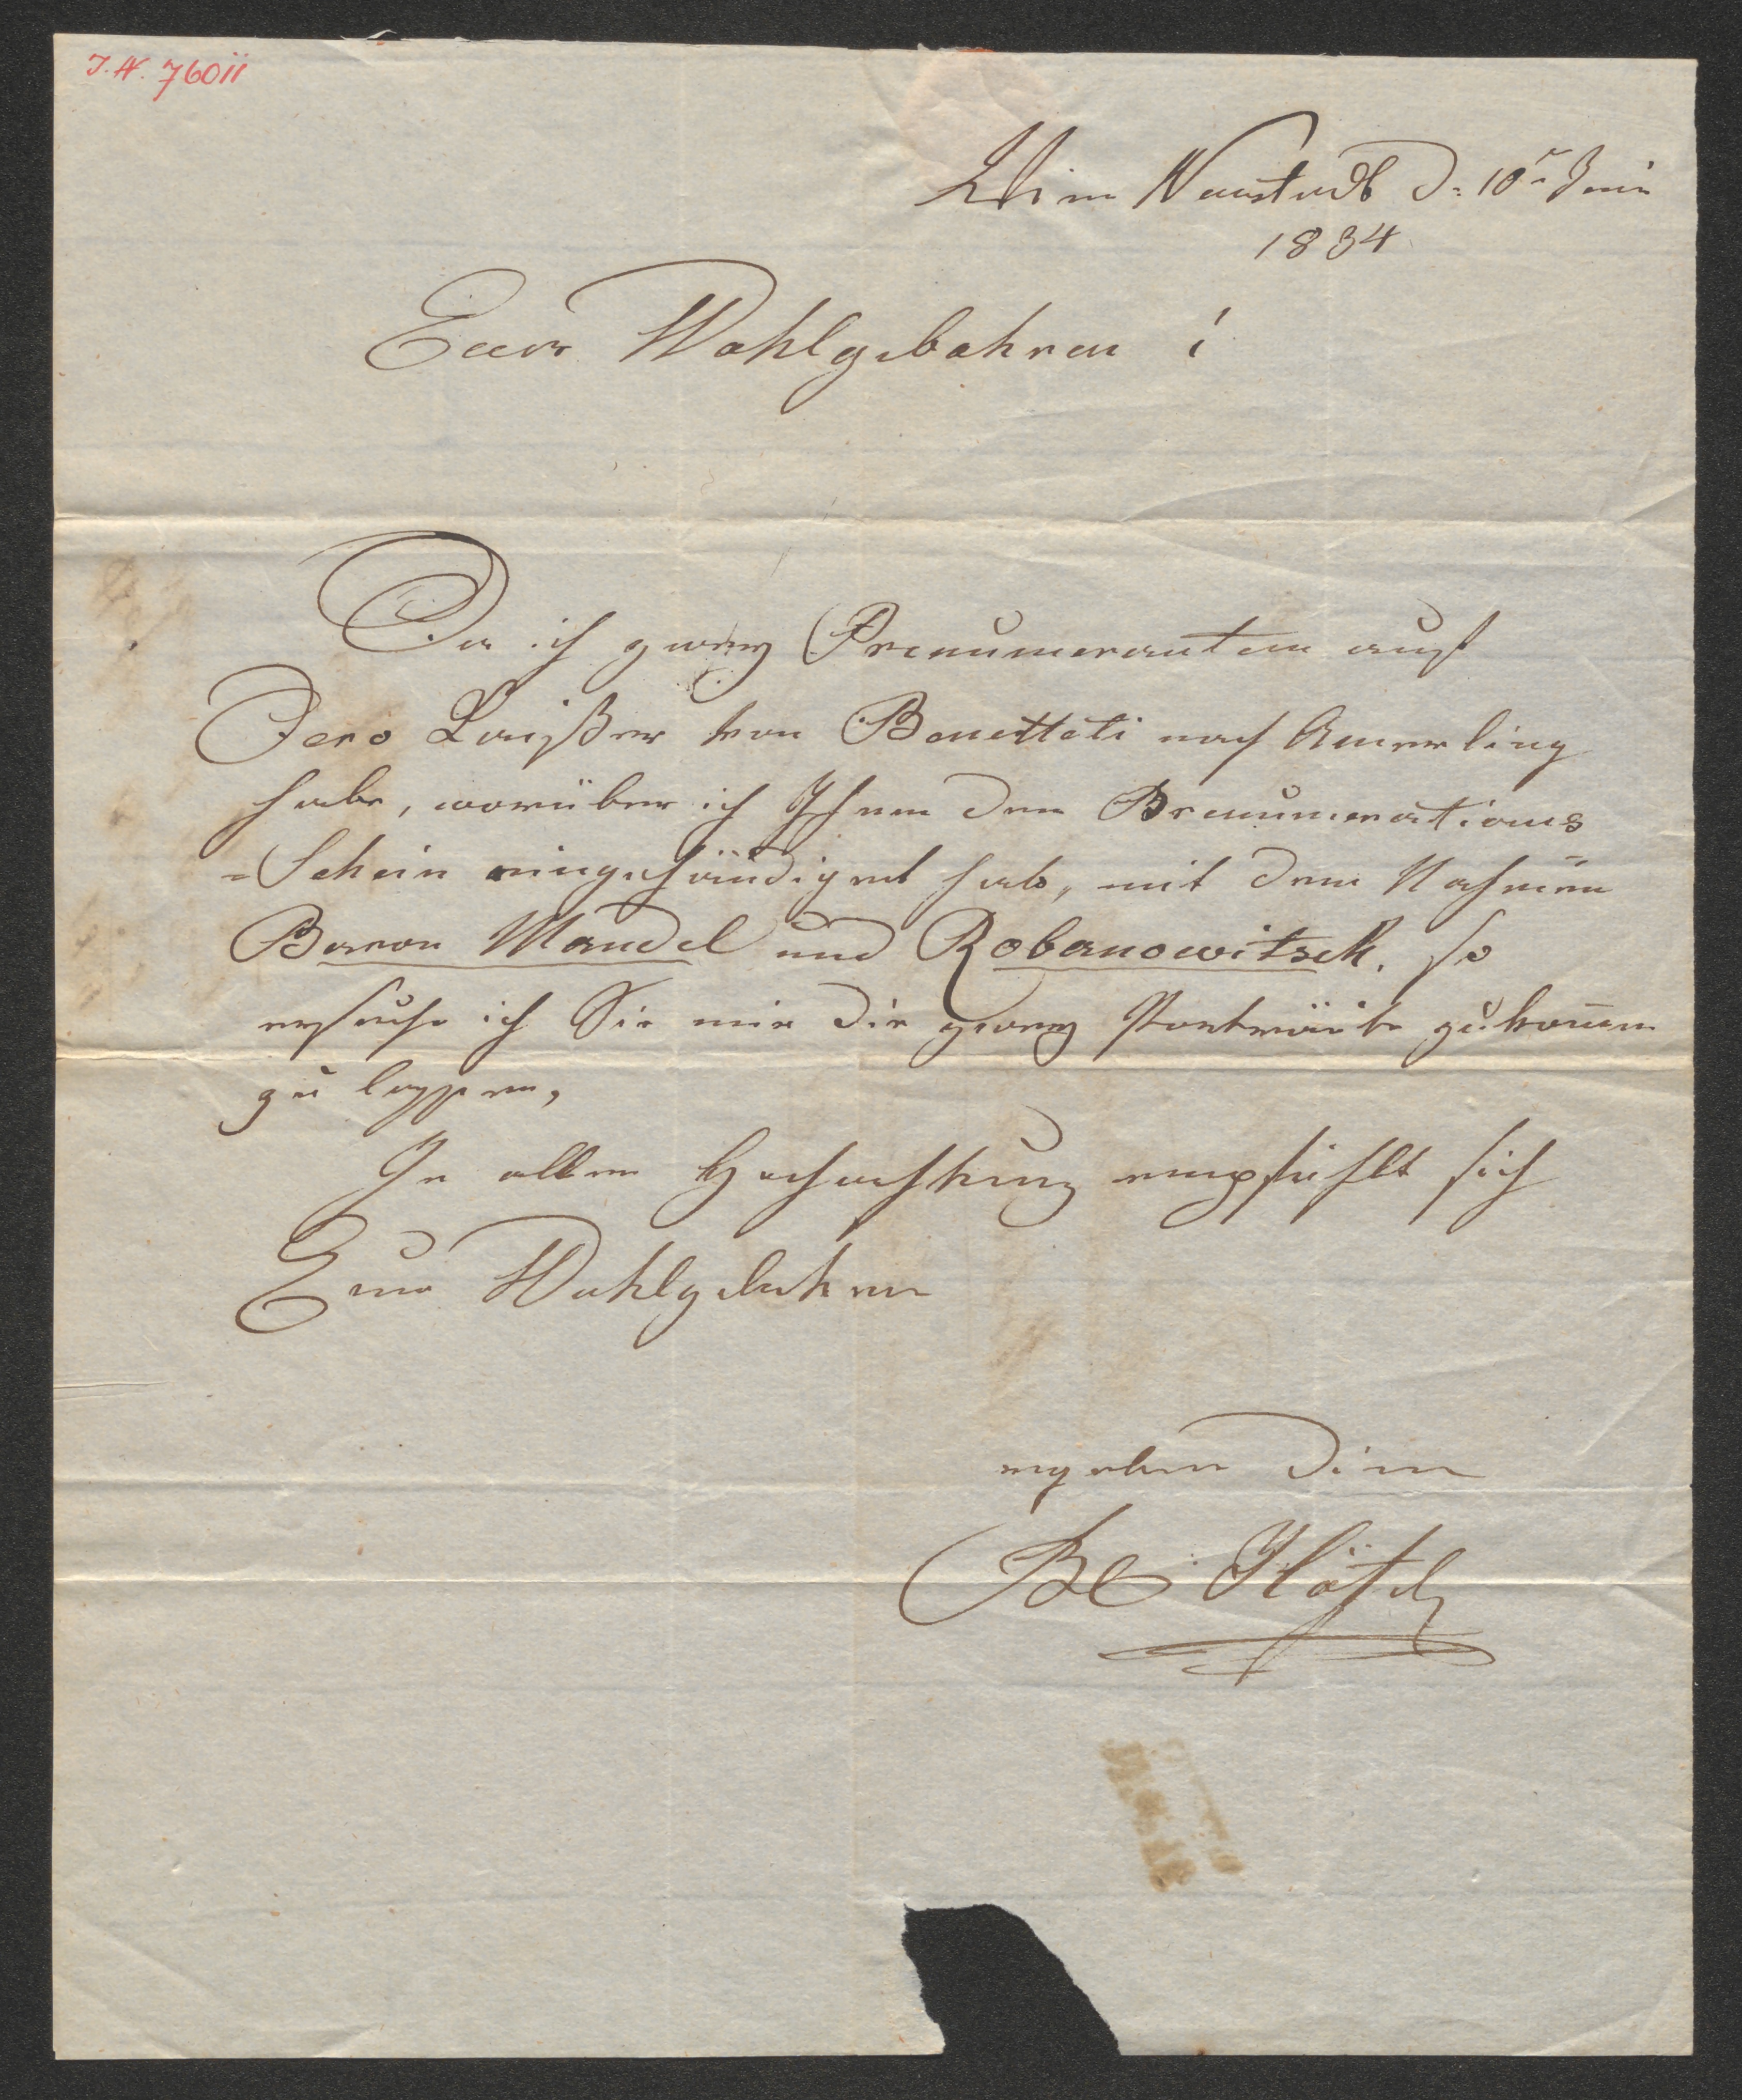 J. N. 76011
Wien Neustadt d: 10n Juni
1834
Euer Wohlgebohren!
Da ich zwey Prenumeranten auf
Dero Kaißer von Benetteti nach Amerling
habe, worüber ich Ihnen den Prenumerations
=Schein eingehändiget hab, mit dem Nahmen
Baron Mandel und Robanowitsch. So
ersuche ich Sie mir die zwey Porträite zukom̄en
zu lassen,
In aller Hochachtung empfiehlt sich
Euer Wohlgebohren
ergebner Diener